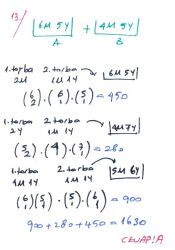 13./ 6M 5Y + 4M 5Y
A B
1.torba 2.torba 6M 5Y
2M 1M 1Y
(6 2) . (6 1) . (5 1) = 450
1.torba 2.torba 4M 7Y
2Y 1M 1Y
(5 2) . (4) . (7 1) = 280
1.torba 2.torba 5M 6Y
1M 1Y 1M 1Y
(6 1) (5 1) . (5 1) . (6 1) = 900
900 + 280 + 450 = 1630
CEVAP/A